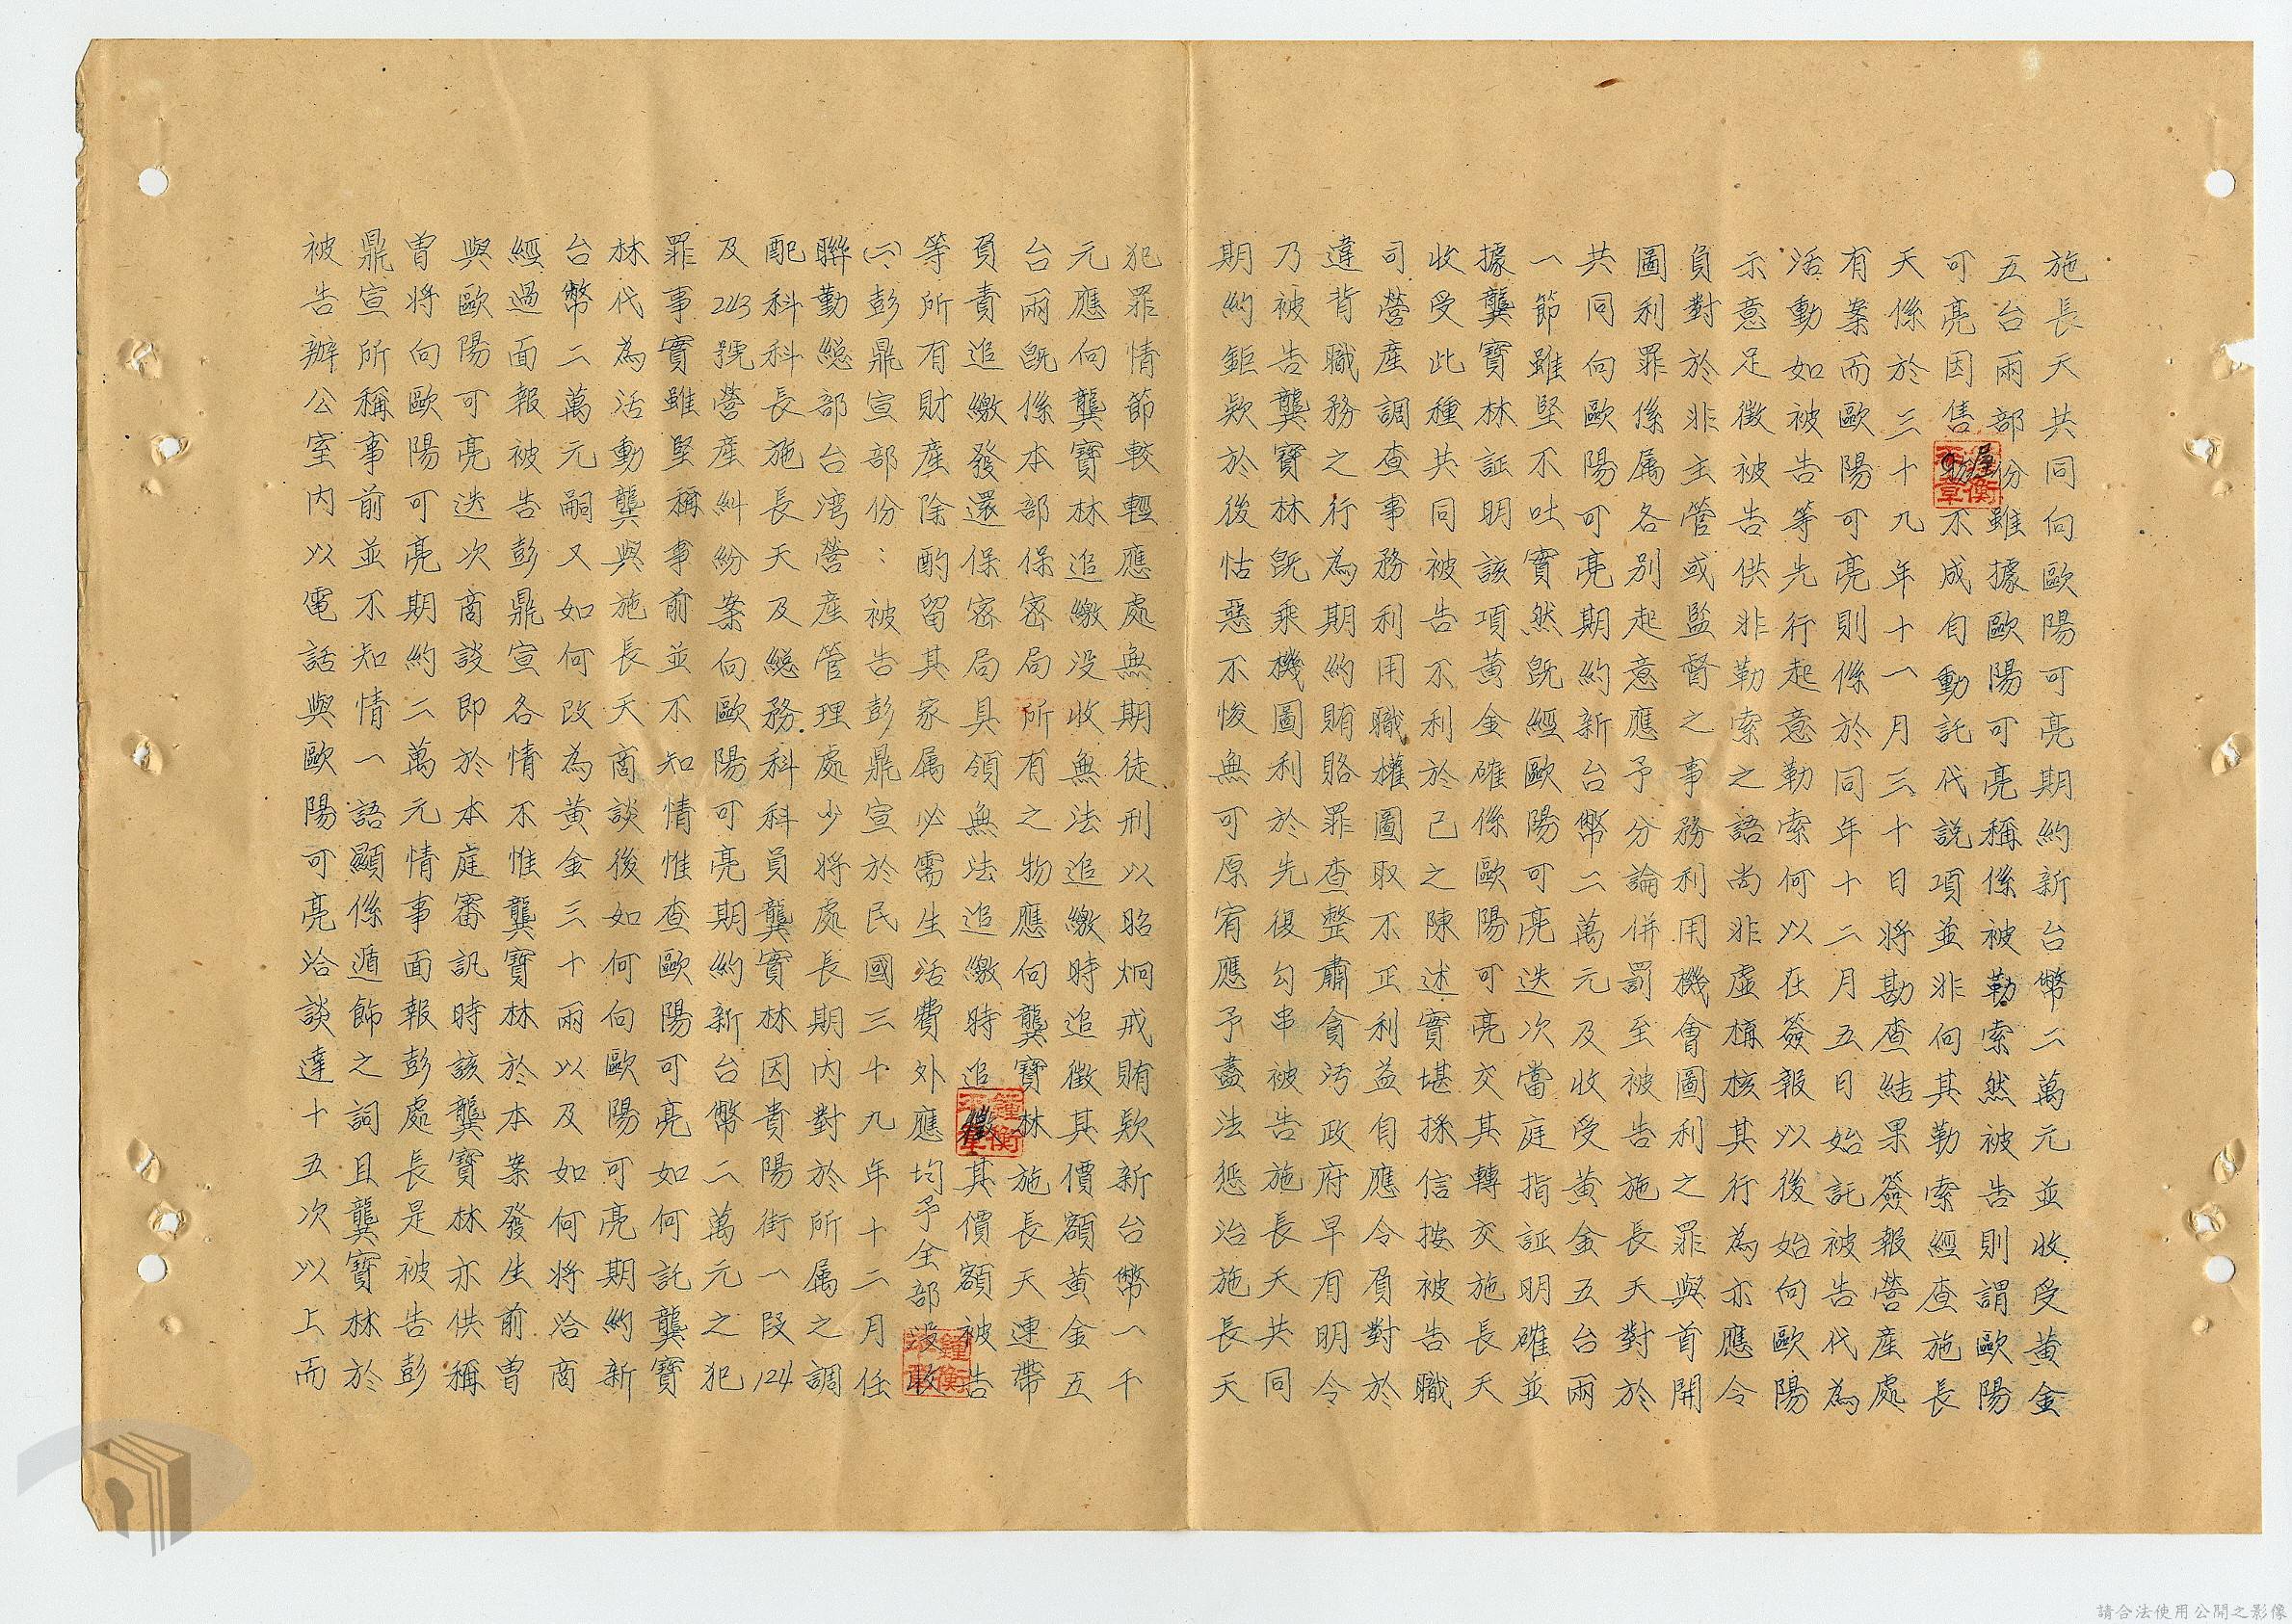 施長天共同向歐陽可亮期約新台幣二萬元並收受黃金
五台兩部份雖據歐陽可亮稱係被勒索然被告則謂歐陽
可亮因售屋不成自動託代說項並非向其勒索經查施長
天係於三十九年十一月三十日將勘查結果簽報營產處
有案而歐陽可亮則係於同年十二月五日始託被告代為
活動如被告等先行起意勒索何以在簽報以後始向歐陽
示意足徵被告供非勒索之語尚非虛構核其行為亦應令
負對於非主管或監督之事務利用機會圖利之罪與首開
圖利罪係属各別起意應予分論併罰至被告施長天對於
共同向歐陽可亮期約新台幣二萬元及收受黃金五台兩
一節雖堅不吐實然既經歐陽可亮迭次當庭指証明確並
據龔寶林証明該項黃金確係歐陽可亮交其轉交施長天
收受此種共同被告不利於己之陳述實堪採信按被告職
司營產調查事務利用職權圖取不正利益自應令負對於
違背職務之行為期約賄賂罪查整肅貪污政府早有明令
乃被告龔寶林既乘機圖利於先復勾串被告施長天共同
期約鉅欵於後怙惡不悛無可原宥應予盡法懲治施長天
犯罪情節較輕應處無期徒刑以昭炯戒賄欵新台幣一千
元應向龔寶林追繳没收無法追繳時追徵其價額黃金五
台兩既係本部保密局所有之物應向龔寶林施長天連帶
負責追繳發還保密局具領無法追繳時追徵其價額被告
等所有財產除酌留其家属必需生活費外應均予全部没收
㈡彭鼎宣部份：被告彭鼎宣於民國三十九年十二月任
聯勤總部台湾營產管理處少將處長期內對於所属之調
配科科長施長天及總務科科員龔寶林因貴陽街一段124
及243號營產糾紛案向歐陽可亮期約新台幣二萬元之犯
罪事實雖堅稱事前並不知情惟查歐陽可亮如何託龔寶
林代為活動龔與施長天商談後如何向歐陽可亮期約新
台幣二萬元嗣又如何改為黃金三十兩以及如何將洽商
經過面報被告彭鼎宣各情不惟龔寶林於本案發生前曾
與歐陽可亮迭次商談即於本庭審訊時該龔寶林亦供稱
曾將向歐陽可亮期約二萬元情事面報彭處長是被告彭
鼎宣所稱事前並不知情一語顯係遁飾之詞且龔寶林於
被告辦公室內以電話與歐陽可亮洽談達十五次以上而
鐘衡
請合法使用公開之影像